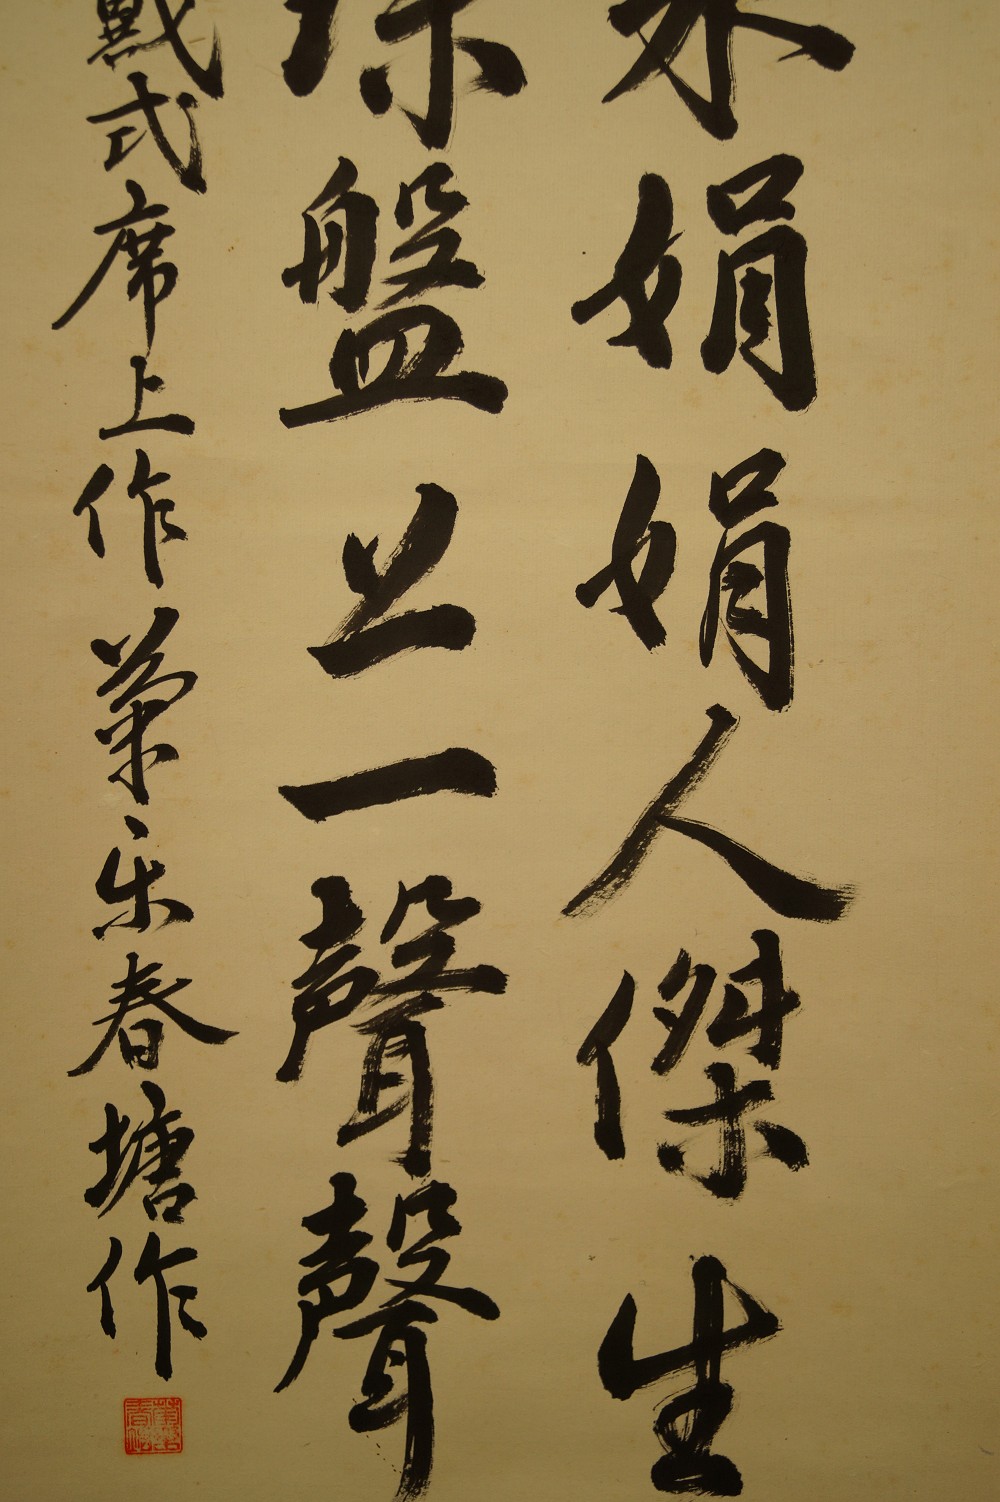 娟娟人傑生
珠盤上一聲聲
戴式席上作春塘作